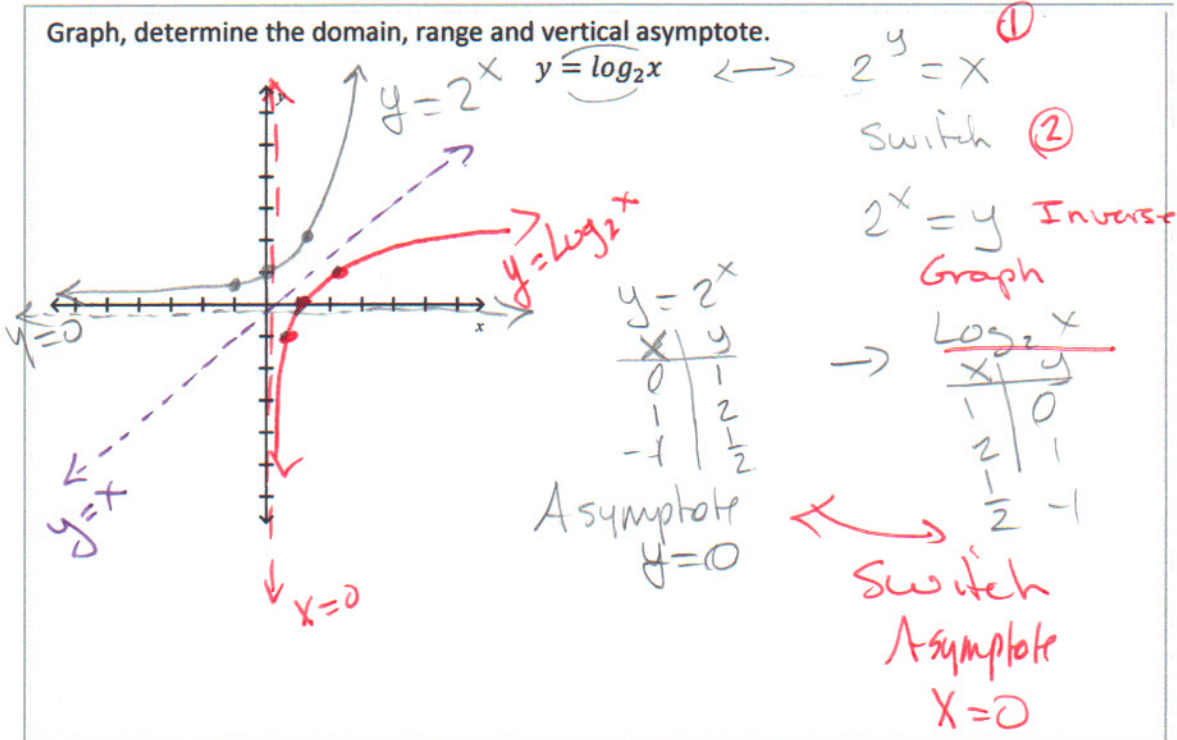 Graph, determine the domain, range and vertical asymptote.
y = log₂x <–> 2^y = x ①
Switch ②
2^x = y Inverse
Graph
y = 2^x
y
x
y = Log₂x
y=0
y=x
x=0
y = 2^x
x | y
0 | 1
1 | 2
-1 | 1/2
Asymptote
y=0
→
Log₂x
x | y
1 | 0
2 | 1
1/2 -1
Switch
Asymptote
x=0